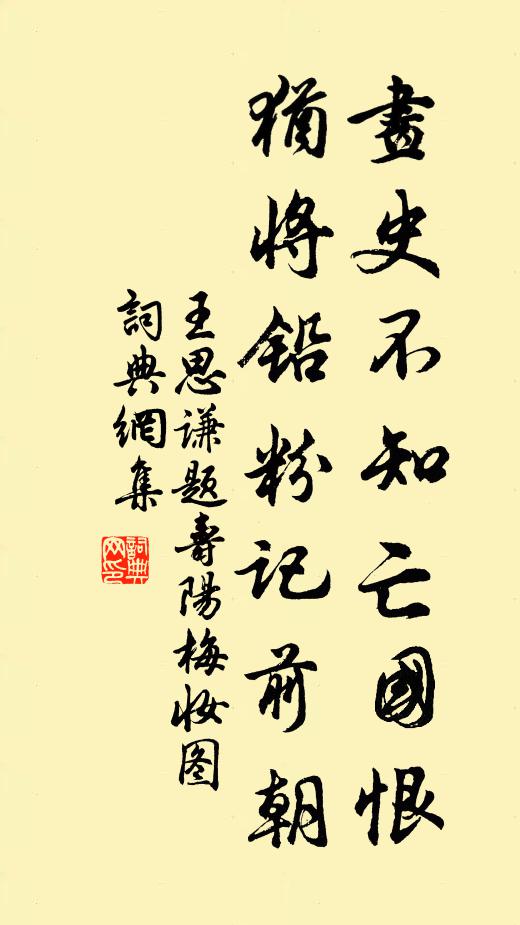 畫史不知亡國恨
猶將鉛粉記前朝
王思謙題壽陽梅妝图
詞典網集
詞典網印